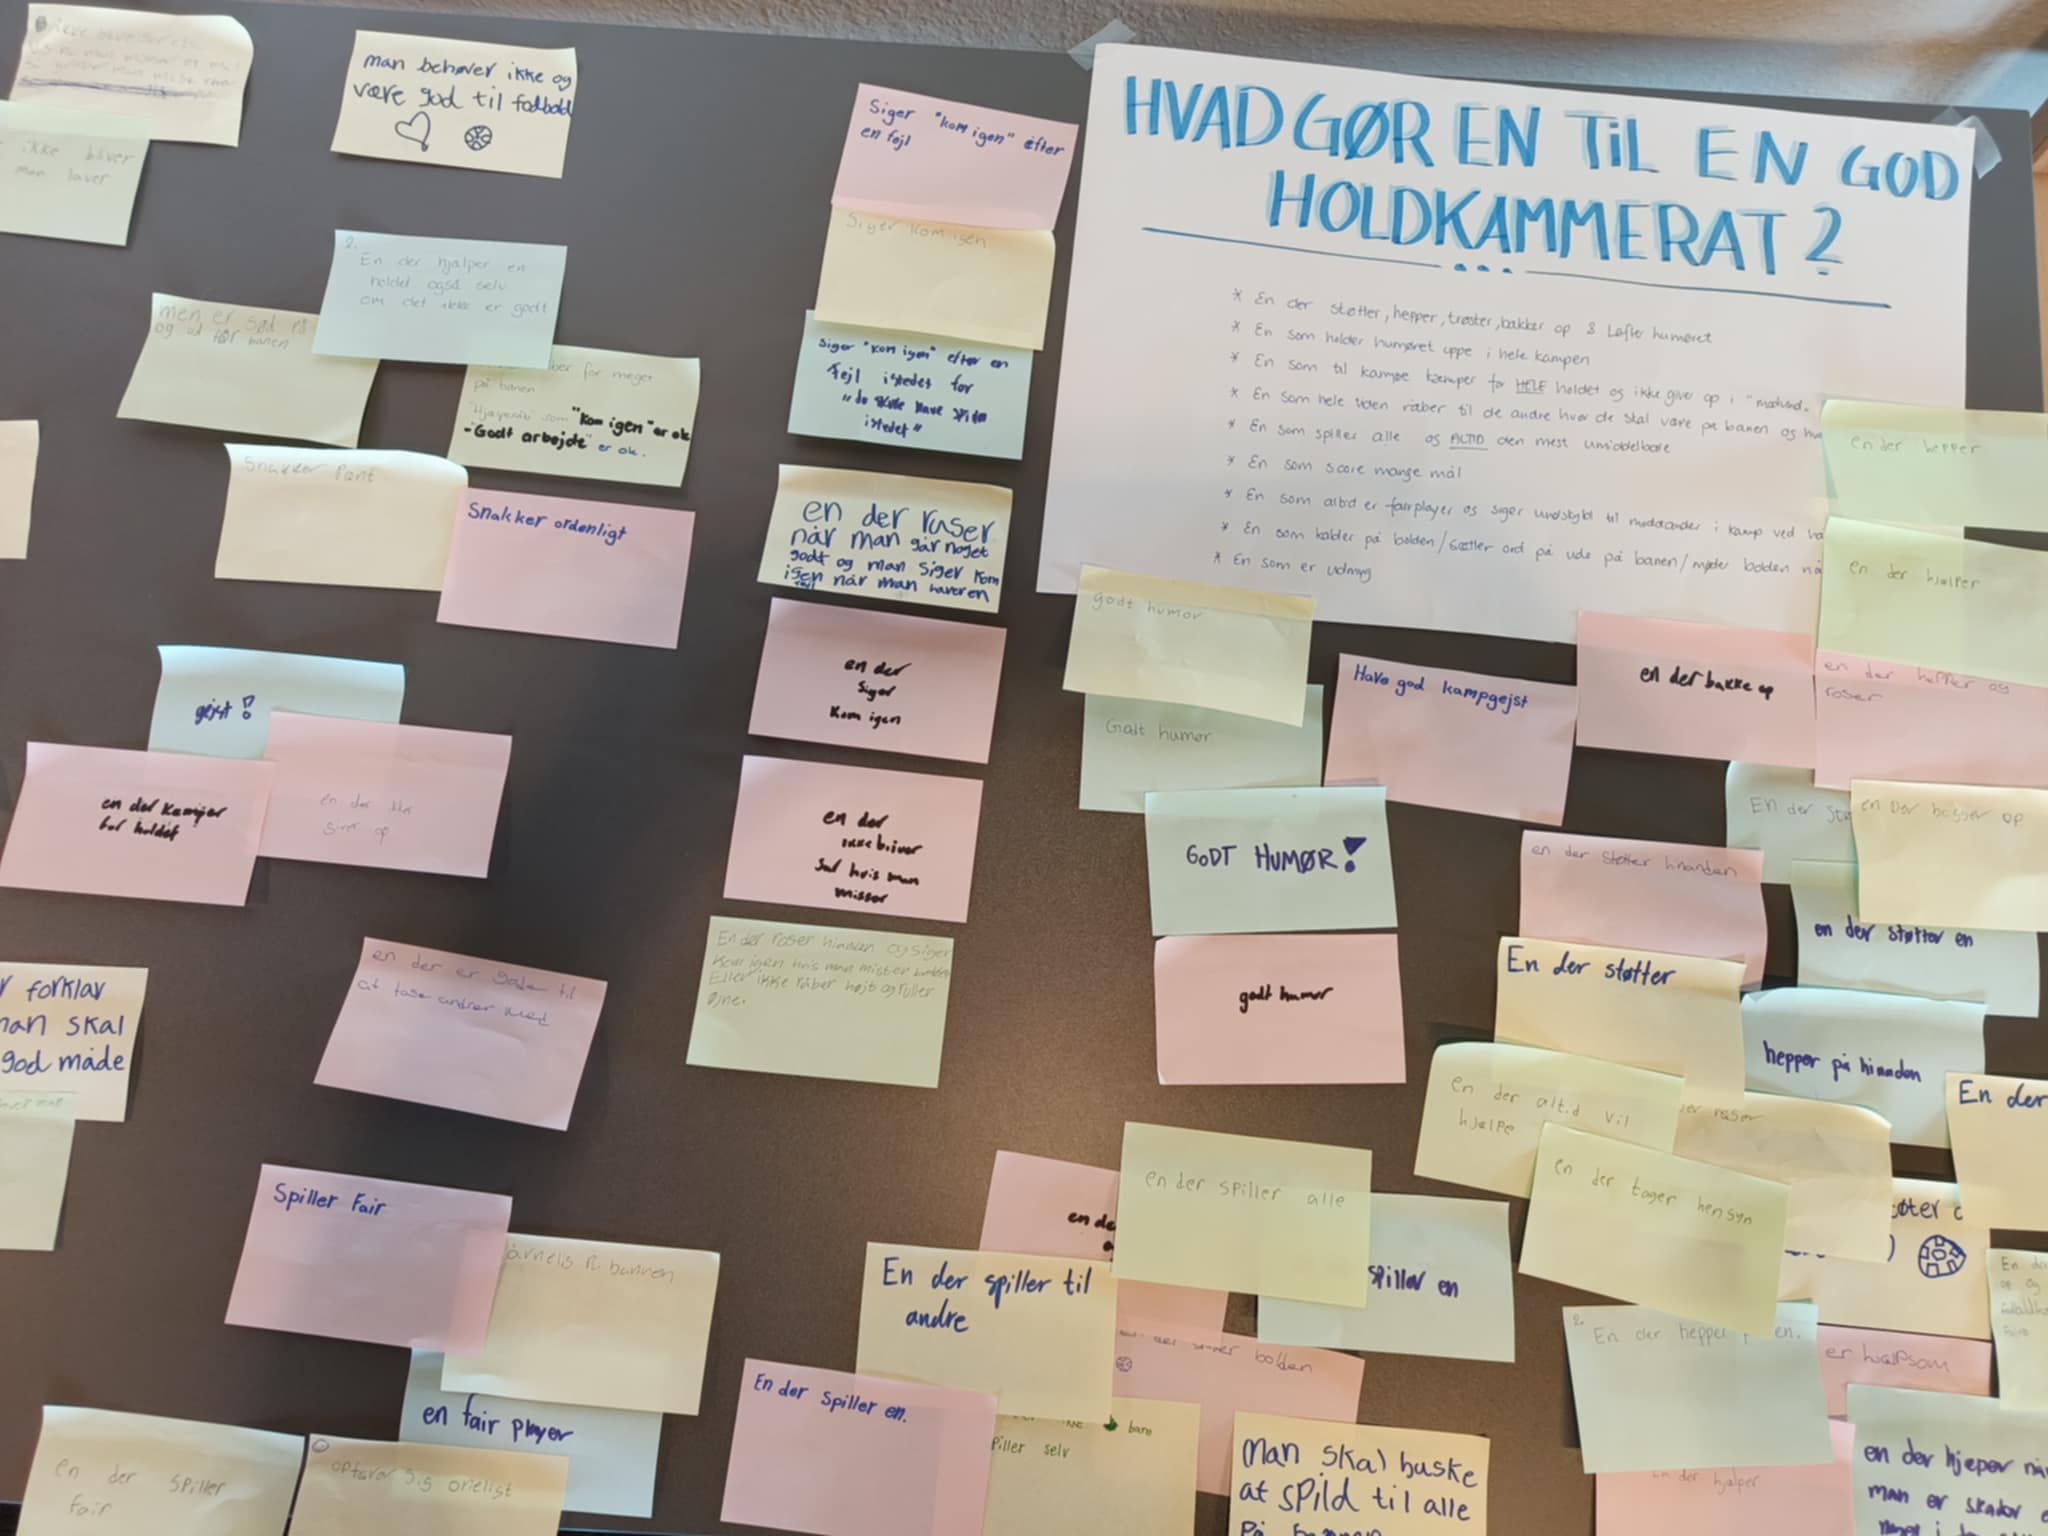 HVAD GØR EN TIL EN GOD
HOLDKAMMERAT?
* En der støtter, hepper, trøster, bakker op & Løfter humøret
* En som holder humøret oppe i hele kampen
* En som til kampe kæmper for HELE holdet og ikke giver op i "modvind.
* En som hele tiden råber til de andre hvor de skal være på banen og
* En som spiller alle og ALTID den mest umiddelbare
* En som score mange mål
* En som altid er fairplayer og siger undskyld til modstander i kamp ved
* En som kalder på bolden/sætter ord på ude på banen/møder bolden
* En som er udmyg
ikke bliver
man laver
man behøver ikke og
være god til fodbold
2.
En der hjælper en
holdet også selv
om det ikke er godt
men er sød på
og ud før banen
for meget
på banen
som "kom igen" er ok
-"Godt arbejde" er ok.
Snakker Pænt
Snakker ordenligt
gejst!
en der kæmper
for holdet
en der ikke
giver op
forklar
man skal
god måde
en der er gode til
at tase andrer med
Spiller Fair
på bannen
en fair player
en der spiller
fair
opfører sig
Siger "kom igen" efter
en fejl
Siger kom igen
Siger "kom igen" efter en
Fejl istedet for
"du skulle have spillet
istedet"
en der ruser
når man gør noget
godt og man siger kom
igen når man laver en
en der
siger
kom igen
en der
ikke bliver
sur hvis man
misser
En der roser hinanden og siger
kom igen hvis man mister bolden
Eller ikke råber højt og ruller
øjne.
godt humør
Godt humør
GODT HUMØR!
godt humør
Have god kampgejst
en der bakke op
en der hepper
en der hjælper
en der hepper og
roser
En der
en der bagger op
en der støtter hinanden
en der støtter en
En der støtter
hepper på hinanden
En der
en der altid vil
hjælpe
en der tager hensyn
en der spiller alle
spiller en
En der spiller til
andre
En der spiller en.
bolden
bare
spiller selv
Man skal huske
at spild til alle
på
2.
En der hepper
er hjælpsom
en der hjælper
en der hjeper når
man er skadet